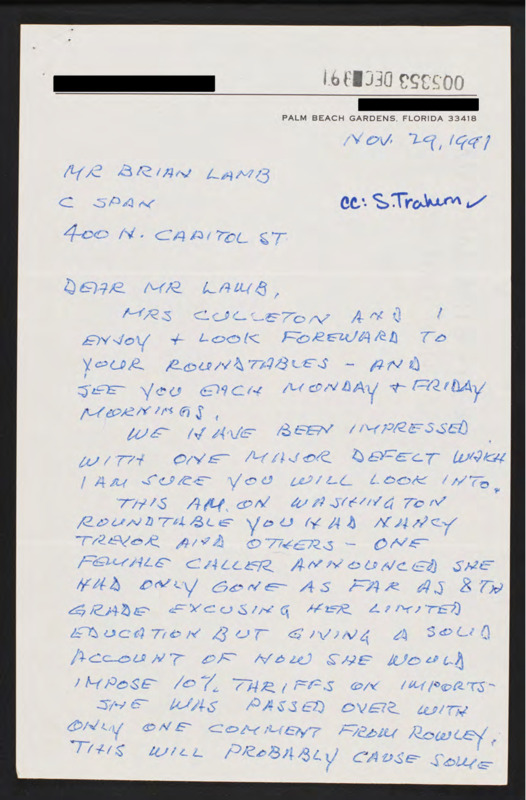 003353 DEC 391
PALM BEACH GARDENS, FLORIDA 33418
NOV. 29, 1991
MR BRIAN LAMB
C SPAN
cc: S.Trahern ✓
400 N. CAPITOL ST
DEAR MR LAMB,
MRS CULLETON AND I
ENJOY + LOOK FOREWARD TO
YOUR ROUNDTABLES - AND
SEE YOU EACH MONDAY + FRIDAY
MORNINGS.
WE HAVE BEEN IMPRESSED
WITH ONE MAJOR DEFECT WHICH
I AM SURE YOU WILL LOOK INTO.
THIS AM. ON WASHINGTON
ROUNDTABLE YOU HAD NANCY
TREVOR AND OTHERS - ONE
FEMALE CALLER ANNOUNCED SHE
HAD ONLY GONE AS FAR AS 8TH
GRADE EXCUSING HER LIMITED
EDUCATION BUT GIVING A SOLID
ACCOUNT OF HOW SHE WOULD
IMPOSE 10% TARIFFS ON IMPORTS-
SHE WAS PASSED OVER WITH
ONLY ONE COMMENT FROM ROWLEY.
THIS WILL PROBABLY CAUSE SOME